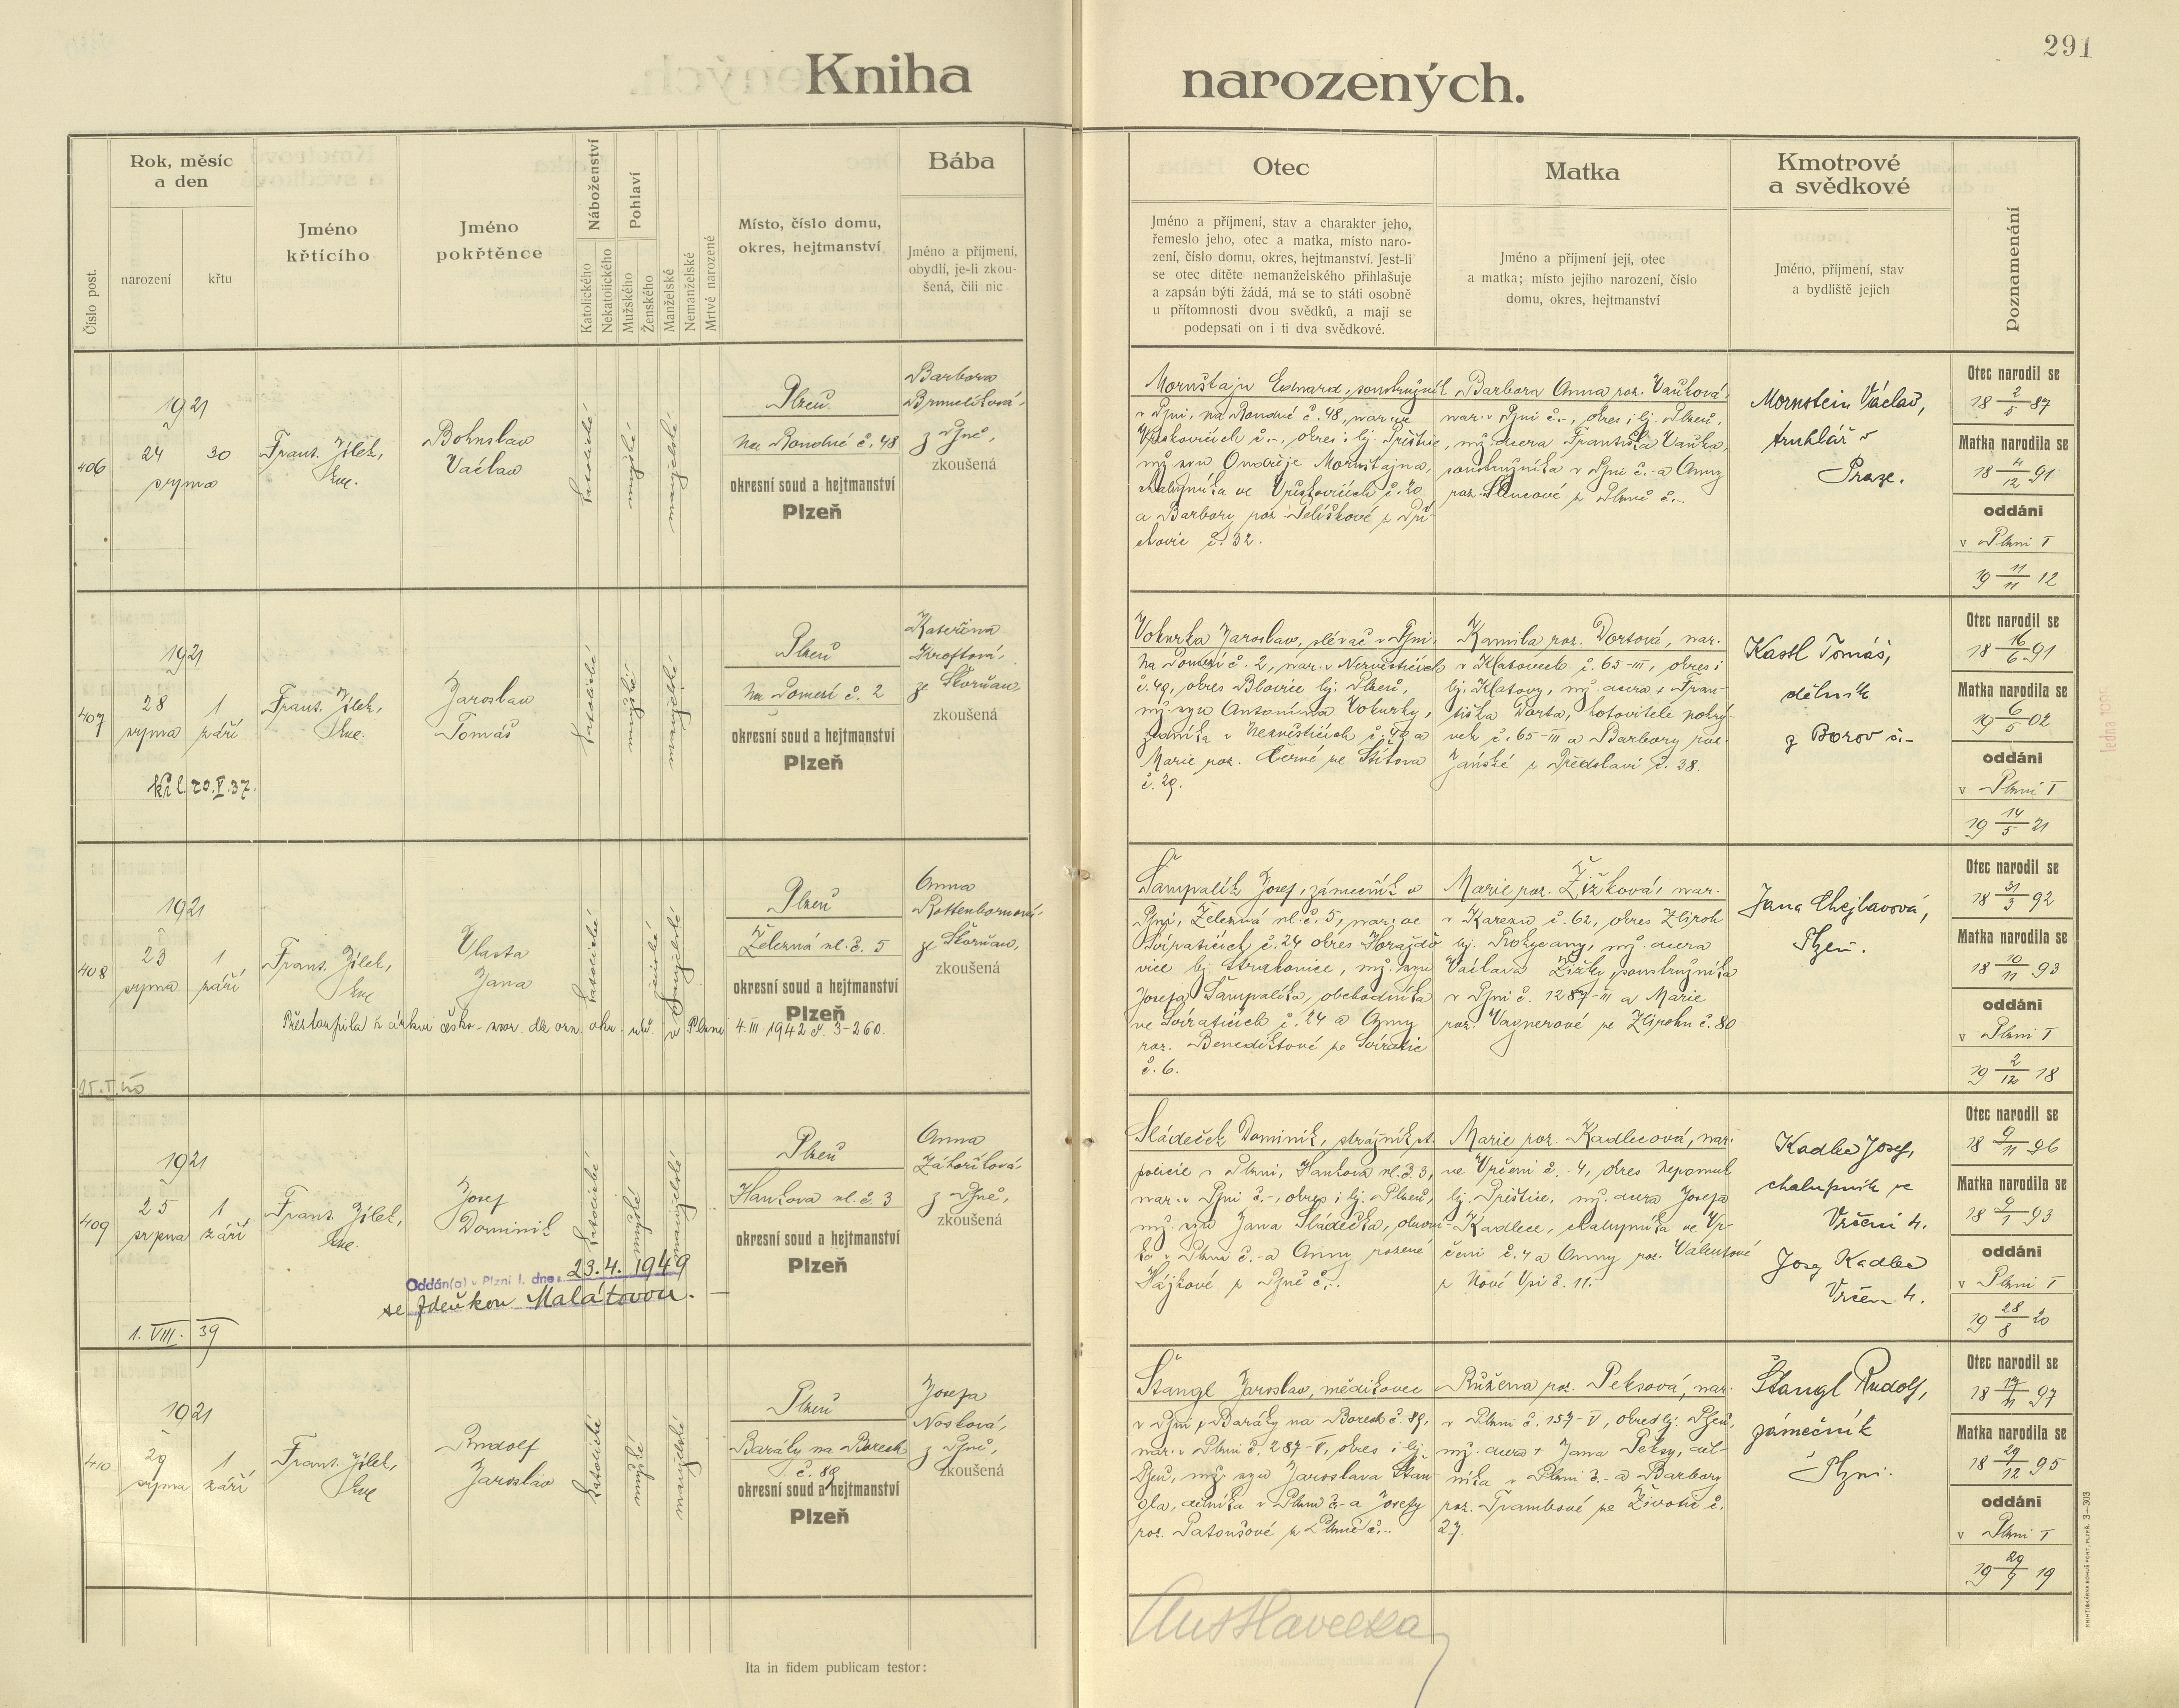 291
Kniha narozených.
Číslo post.
Rok, měsíc
a den
narození
křtu
Jméno
křtícího
Jméno
pokřtěnce
Náboženství
Katolického
Nekatolického
Pohlaví
Mužského
Ženského
Manželské
Nemanželské
Mrtvě narozené
Místo, číslo domu,
okres, hejtmanství
Bába
Jméno a příjmení,
obydlí, je-li zkou-
šená, čili nic
Otec
Jméno a příjmení, stav a charakter jeho,
řemeslo jeho, otec a matka, místo naro-
zení, číslo domu, okres, hejtmanství. Jest-li
se otec dítěte nemanželského přihlašuje
a zapsán býti žádá, má se to státi osobně
u přítomnosti dvou svědků, a mají se
podepsati on i ti dva svědkové.
Matka
Jméno a příjmení její, otec
a matka; místo jejího narození, číslo
domu, okres, hejtmanství
Kmotrové
a svědkové
Jméno, příjmení, stav
a bydliště jejich
Poznamenání
406
1921
24 30
srpna
Frant. Jílek,
Bohuslav
Václav
katolické
mužské
manželské
Plzeň
Na Roudné č. 48
okresní soud a hejtmanství
Plzeň
Barbora
z Plzně,
zkoušená
Mornštajn Eduard, soustružník
v Plzni, na Roudné č. 48, nar. ve
č. -, okres i hj. Přeštice,
mž. syn Ondřeje Mornštajna,
a Barbory roz.
č. 32.
Barbora Anna roz. Vaňková,
nar. v Plzni č. -, okres i hj. Plzeň,
mž. dcera Františka Vaňka,
soustružníka v Plzni č. - a Anny
roz. z Plzně č. -.
Mornstein Václav,
truhlář v
Praze.
Otec narodil se
18 2/5 87
Matka narodila se
18 4/12 91
oddáni
v Plzni I
19 11/11 12
407
1921
28 1
srpna září
20.V.37.
Frant. Jílek,
Jaroslav
Tomáš
katolické
mužské
manželské
Plzeň
Na Pomezí č. 2
okresní soud a hejtmanství
Plzeň
Kateřina
Kroftová,
ze Skvrňan,
zkoušená
Vokurka Jaroslav, slévač v Plzni,
Na Pomezí č. 2, nar. v Nezvěsticích
č. 49, okres Blovice hj. Plzeň,
mž. syn Antonína Vokurky,
v Nezvěsticích č. 49 a
Marie roz. Černé ze Štítova
č. 29.
Kamila roz. Dortová, nar.
v Klatovech č. 65-III, okres i
hj. Klatovy, mž. dcera + Fran-
tiška Dorta, hotovitele pokrý-
vek č. 65-III a Barbory roz.
Janské z Předslavi č. 38.
Kastl Tomáš,
dělník
z Borov č. -
Otec narodil se
18 16/6 91
Matka narodila se
19 6/5 02
oddáni
v Plzni I
19 14/5 21
408
1921
23 1
srpna září
Frant. Jílek,
Vlasta
Jana
katolické
ženské
manželské
Plzeň
Železná ul. č. 5
okresní soud a hejtmanství
Plzeň
Anna
Rottenbornová,
ze Skvrňan,
zkoušená
Přestoupila k církvi česko-mor. dle ozn. okr. úřu. v Plzni 4. III. 1942 č. 3-260.
Šampalík Josef, zámečník v
Plzni, Železná ul. č. 5, nar. ve
Svíraticích č. 24 okres Horažďo-
vice hj. Strakonice, mž. syn
Josefa Šampalíka, obchodníka
ve Svíraticích č. 24 a Anny
roz. Benediktové ze Svíratic
č. 6.
Marie roz. Žižková, nar.
v Karezu č. 62, okres Zbiroh
hj. Rokycany, mž. dcera
Václava Žižky, soustružníka
v Plzni č. 1287-III a Marie
roz. Vagnerové ze Zbirohu č. 80
Jana Chejlavová,
Plzeň.
Otec narodil se
18 31/3 92
Matka narodila se
18 10/11 93
oddáni
v Plzni I
19 2/12 18
409
1921
25 1
srpna září
Frant. Jílek,
Josef
Dominik
katolické
mužské
manželské
Plzeň
Hankova ul. č. 3
okresní soud a hejtmanství
Plzeň
Anna
Záhoříková,
z Plzně,
zkoušená
Oddán(a) v Plzni I. dne: 23.4. 1949
se Zdeňkou Malátovou. -
1. VIII. 39
Sládeček Dominik, strážník st.
policie v Plzni, Hankova ul. č. 3,
nar. v Plzni č. -, okres i hj. Plzeň,
mž. syn Jana Sládečka,
v Plzni č. - a Anny rozené
Hájkové z Plzně č. -.
Marie roz. Kadlecová, nar.
ve Vrčeni č. 4, okres Nepomuk
hj. Přeštice, mž. dcera Josefa
Kadlece, chalupníka ve Vr-
čeni č. 4 a Anny roz. Valentové
z Nové Vsi č. 11.
Kadlec Josef,
chalupník ve
Vrčeni 4.
Josef Kadlec
Vrčen 4.
Otec narodil se
18 9/11 96
Matka narodila se
18 9/1 93
oddáni
v Plzni I
19 28/8 20
410
1921
29 1
srpna září
Frant. Jílek,
Rudolf
Jaroslav
katolické
mužské
manželské
Plzeň
Baráky na Borech
č. 89
okresní soud a hejtmanství
Plzeň
Josefa
Nosková,
z Plzně,
zkoušená
Štangl Jaroslav, mědikovec
v Plzni, Baráky na Borech č. 89,
nar. v Plzni č. 287-V, okres i hj.
Plzeň, mž. syn Jaroslava Štan-
gla, dělníka v Plzni č. - a Josefy
roz. Patoušové z Plzně č. -.
Růžena roz. Peksová, nar.
v Plzni č. 157-V, okres hj. Plzeň,
mž. dcera + Jana Peksy, děl-
níka v Plzni č. - a Barbory
roz. Trambové ze Životic č.
27.
Štangl Rudolf,
zámečník
Plzni.
Otec narodil se
Matka narodila se
18 29/12 95
oddáni
v Plzni I
19 29/9 19
Ita in fidem publicam testor: